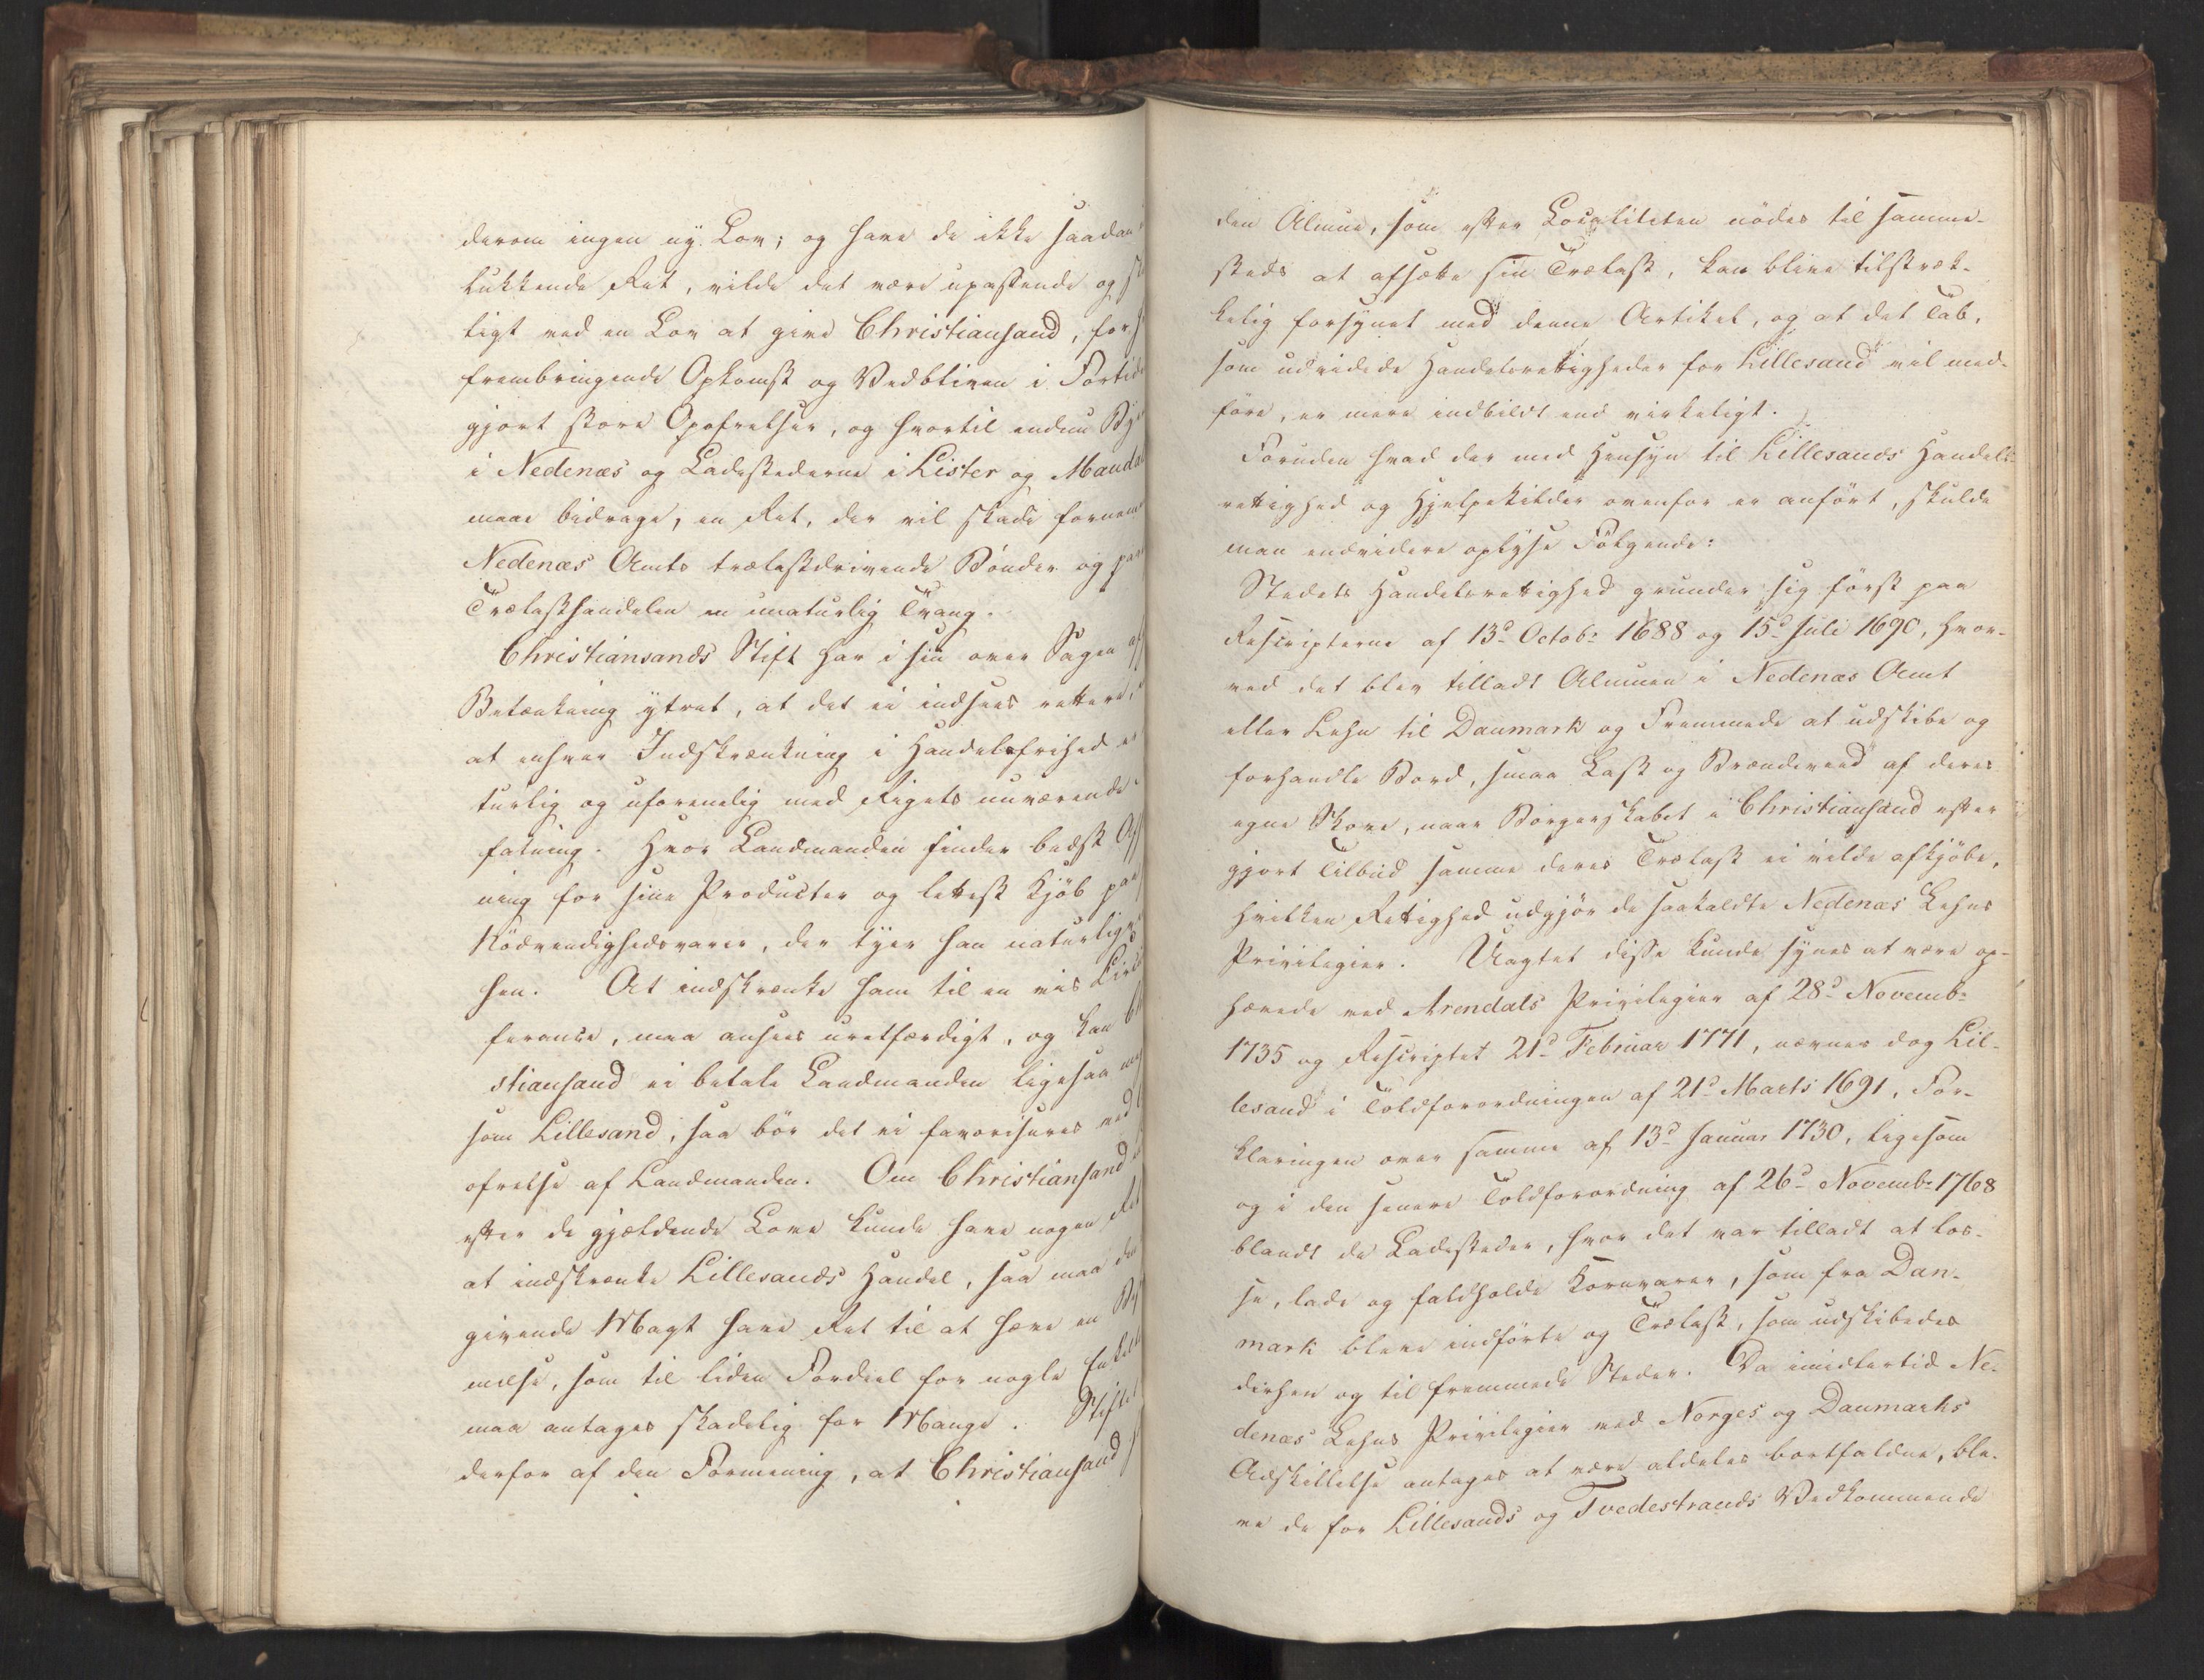 derom ingen ny Lov; og have de ikke saadan
lukkende Ret, vilde det være upassende og
ligt ved en Lov at give Christiansand, for
frembringende Opkomst og Vedbliven i Fortid
gjort store Opofrelser, og hvortil endnu By
i Nedenæs og Ladestederne i Lister og Manda
maae bidrage, en Ret, der vil skade fornem
Nedenæs Amts trælastdrivende Bönder og paa
Trælasthandelen en unaturlig Tvang.
Christiansands Stift har i sin over Sagen af
Betænkning yttret, at det ei indsees rettere,
at enhver Indskrænkning i Handelsfrihed er
turlig og uforenelig med Rigets nuværende
fatning. Hvor Landmanden finder bedst Af
ning for sine Producter og lettest Kjöb paa
Nödvendighedsvarer, der tyer han naturligvis
hen. At indskrænke ham til en vis Cir
ferance, maa ansees uretfærdigt, og kan
stiansand ei betale Landmanden ligesaa
som Lillesand, saa bör det ei favoriseres ved
ofrelse af Landmanden. Om Christiansand
efter de gjældende Love kunde have nogen Ret
at indskrænke Lillesands Handel, saa maa den
givende Magt have Ret til at hæve en
melse, som til liden Fordeel for nogle Enkelte
maa antages skadelig for Mange. Stiftet
derfor af den Formening, at Christiansand
den Almue, som efter Localiteten nödes til samme-
steds at afsætte sin Trælast, kan blive tilstræk-
kelig forsynet med denne Artikel, og at det Tab,
som udvidede Handelsrettigheder for Lillesand vil med-
före, er mere indbildt end virkeligt.
Foruden hvad der med Hensyn til Lillesands Handels-
rettighed og Hjelpekilder ovenfor er anfört, skulde
man endvidere oplyse Fölgende:
Stedets Handelsrettighed grunder sig först paa
Rescripterne af 13d Octobr 1688 og 15d Juli 1690, hvor-
ved det blev tilladt Almuen i Nedenæs Amt
eller Lehn til Danmark og Fremmede at udskibe og
forhandle Bord, smaa Last og Brændeveed af deres
egne Skove, naar Borgerskabet i Christiansand efter
gjort Tilbud samme deres Trælast ei vilde afkjöbe,
hvilken Rettighed udgjör de saakaldte Nedenæs Lehns
Privilegier. Uagtet disse kunde synes at være op-
hævede ved Arendals Privilegier af 28d Novembr
1735 og Rescriptet 21d Februar 1771, nævnes dog Lil-
lesand i Toldforordningen af 21d Marts 1691, For-
klaringen over samme af 13d Januar 1730, ligesom
og i den senere Toldforordning af 26d Novembr 1768
blandt de Ladesteder, hvor det var tilladt at los-
se, lade og faldholde Kornvarer, som fra Dan-
mark bleve indförte og Trælast, som udskibedes
derhen og til fremmede Steder. Da imidlertid Ne-
denæs Lehns Privilegier ved Norges og Danmarks
Adskillelse antages at være aldeles bortfaldne, ble-
ve de for Lillesands og Tvedestrands Vedkommende